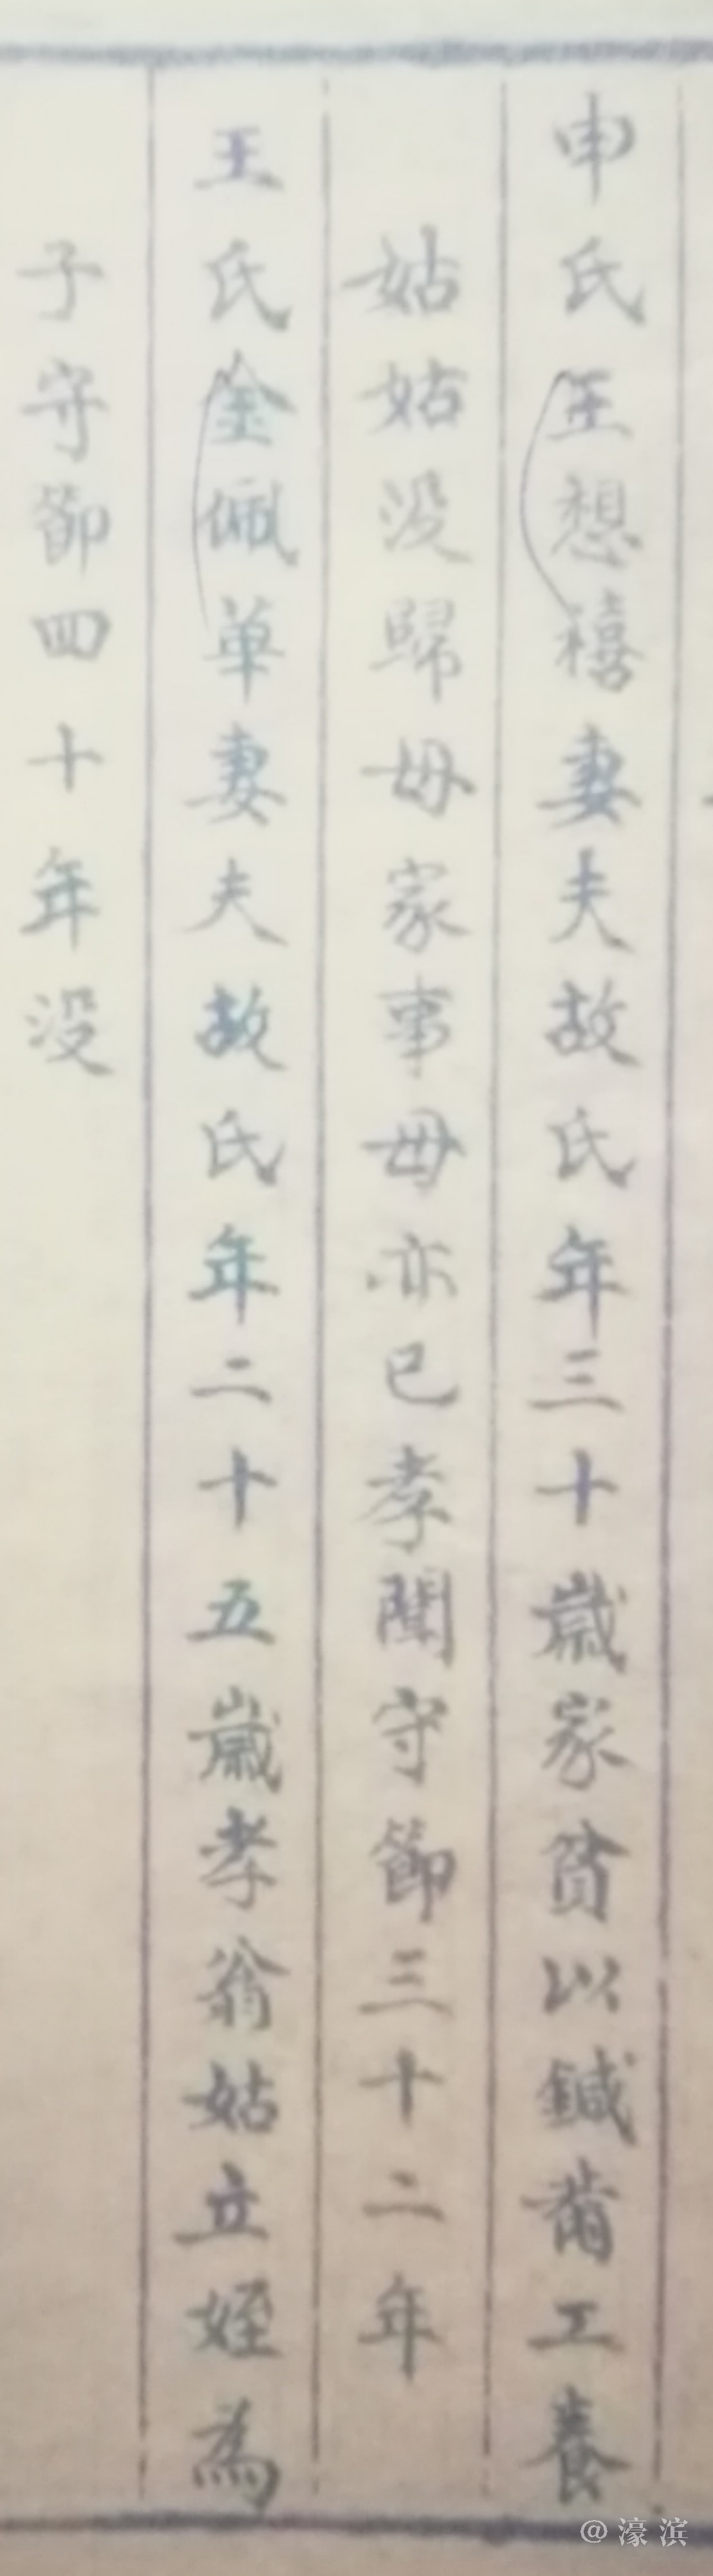 申氏王想禧妻夫故氏年三十歲家貧以鍼黹工養
姑姑没歸母家事母亦已孝聞守節三十二年
王氏金佩華妻夫故氏年二十五歲孝翁姑立姪為
子守節四十年没
@濠滨